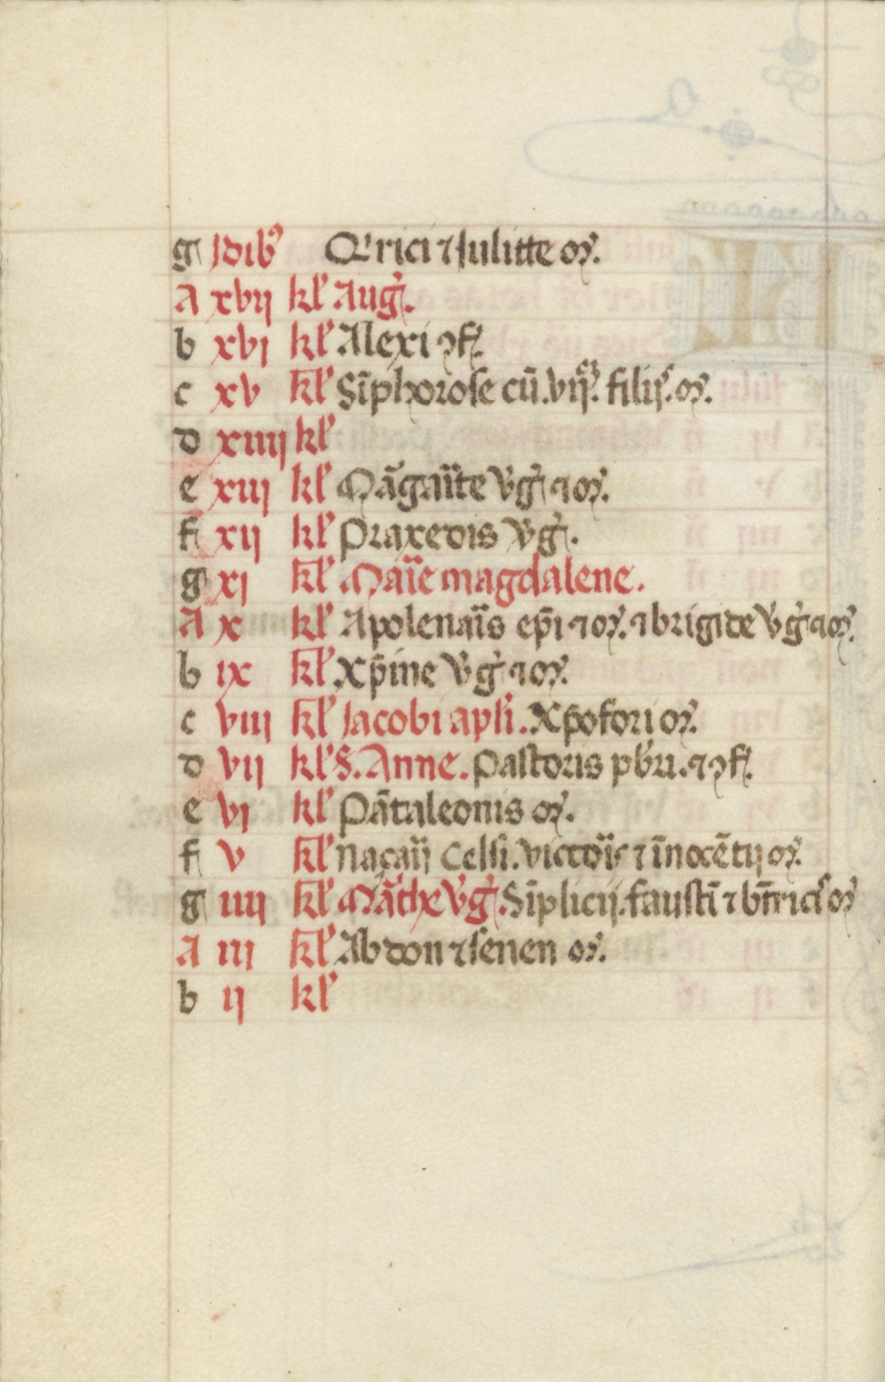 g Idib᷒ Q'rici ⁊ Julitte oꝝ.
A xvij kl' Augꝰ.
b xvj kl' Alexi ꝯf.
c xv kl' Sīphorose cū .vijꝫ. filijs. oꝝ.
d xiiij kl'
e xiij kl' Māgaīte v̾gͥ ⁊ oꝝ.
f xij kl' Praxedis v̾gͥ.
g xj kl' Maīe magdalene.
A x kl' Apolenaīs ep̄i ⁊ oꝝ. ⁊ brigide v̾gͥ ⁊ oꝝ.
b ix kl' Xp̄ine v̾gͥ ⁊ oꝝ.
c viij kl' Jacobi apl̄i. Xp̄ofori oꝝ.
d vij kl' S. Anne. Pastoris pbri. ⁊ ꝯf.
e vj kl' Pātaleonis oꝝ.
f v kl' Naçaīj Celsi. victoīs ⁊ īnocētij oꝝ
g iiij kl' Māthe v̾gͥ. Sīplicij. faustī ⁊ bn̄tricis oꝝ
A iij kl' Abdon ⁊ senen oꝝ.
b ij kl'